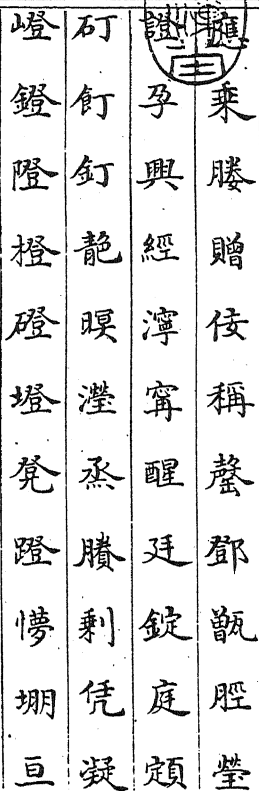 應乘媵贈倰稱罄鄧甑脛瑩
證孕興經濘甯醒廷錠庭顁
矴飣釘靘暝瀅烝賸剩凭凝
嶝鐙隥橙磴墱凳蹬懜堋亘